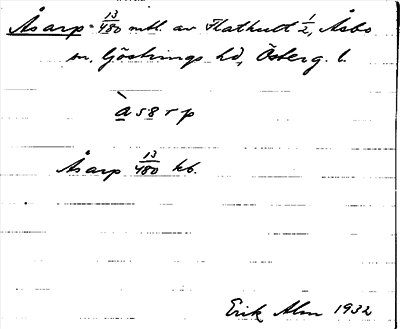 Åsarp 13/480 mtl. av Flathult 1/2, Åsbo
sn, Göstrings hd, Österg. l.
às8rp
Åsarp 13/480 kb.
Erik Alm 1932